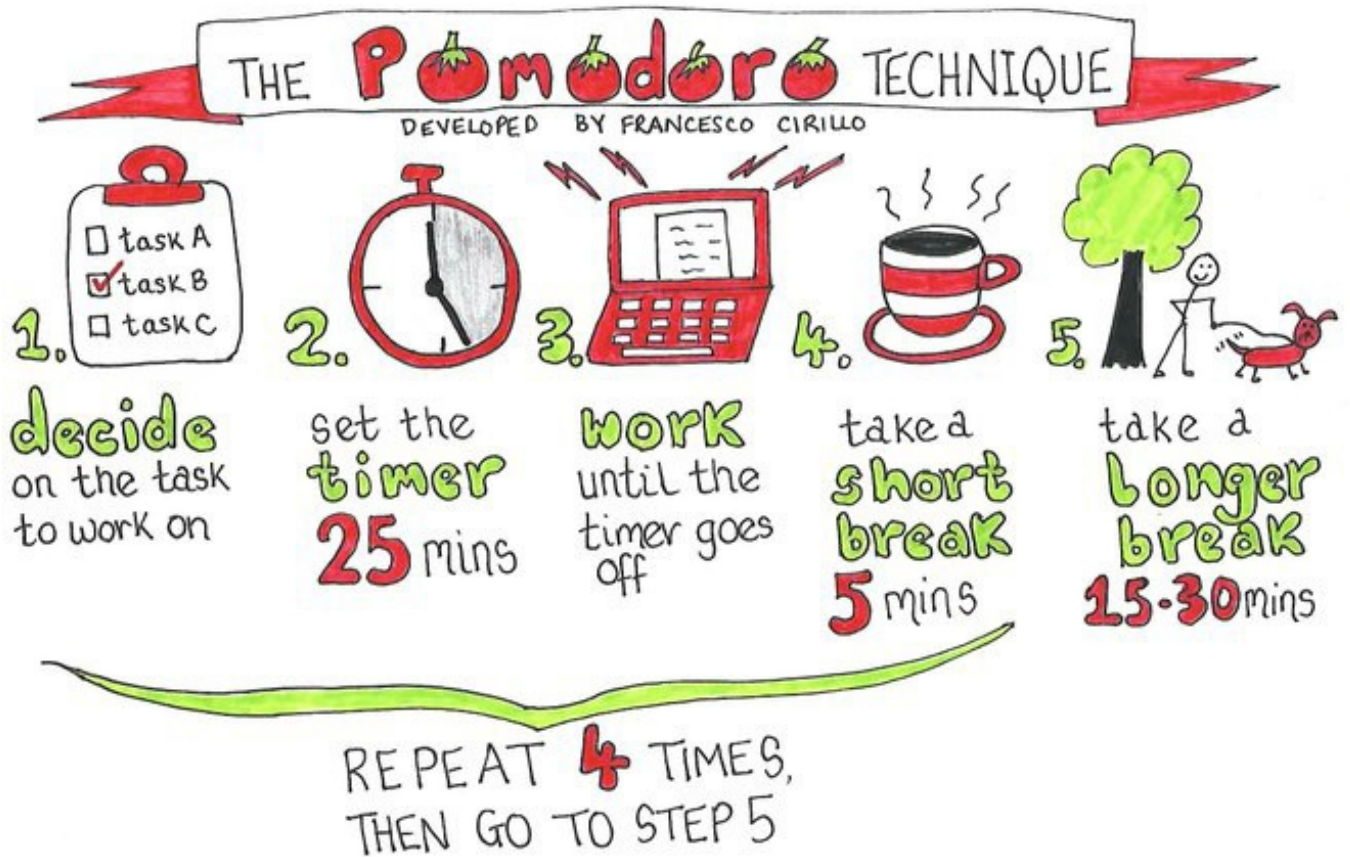 THE Pomodoro TECHNIQUE
DEVELOPED BY FRANCESCO CIRILLO
task A
task B
task C
1.
decide
on the task
to work on
2.
set the
timer
25 mins
3.
work
until the
timer goes
off
4.
take a
short
break
5 mins
5.
take a
longer
break
15-30 mins
REPEAT 4 TIMES,
THEN GO TO STEP 5